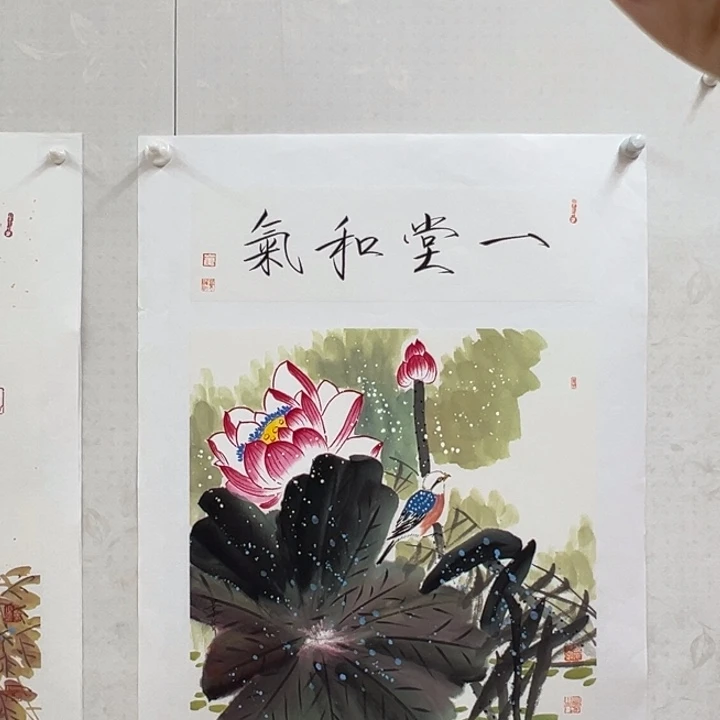 一堂和氣